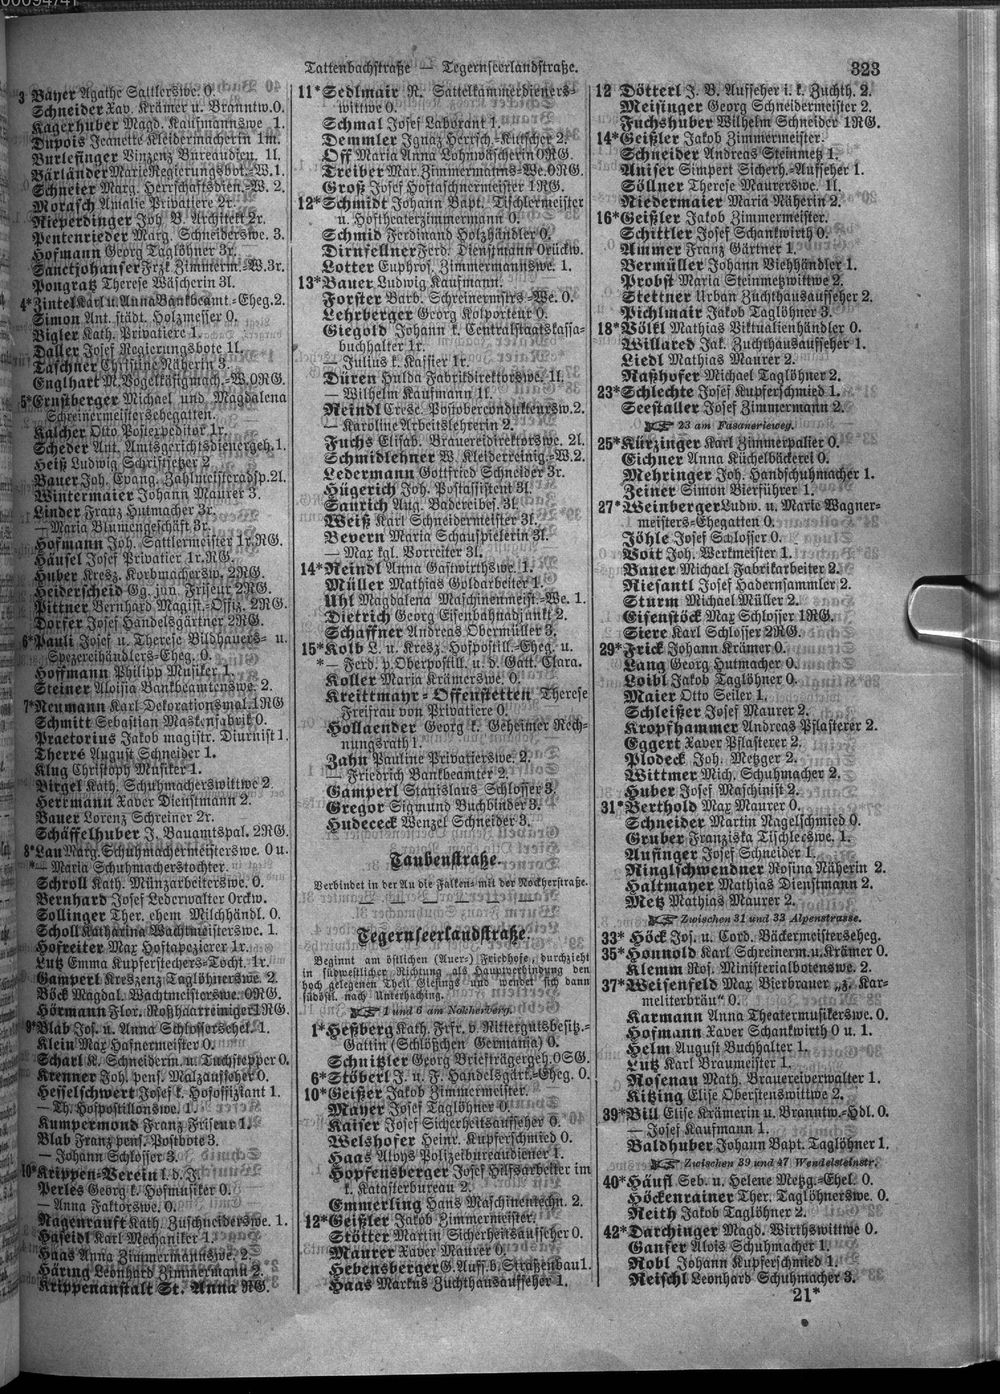 00094741
Tattenbachstraße — Tegernseerlandstraße.
323
3 Bayer Agathe Sattlerswe. 0.
Schneider Xav. Krämer u. Branntw. 0.
Kagerhuber Magd. Kaufmannswe 1.
Dupois Jeanette Kleidermacherin 1m.
Burlefinger Vinzenz Büreaudien. 1l.
Bärländer Marie Regierungsbot.-W. 1.
Schneier Marg. Herrschaftsdien.-W. 2.
Morasch Amalie Privatiere 2r.
Rieperdinger Joh. B. Architekt 2r.
Pentenrieder Marg. Schneiderswe. 3.
Hofmann Georg Taglöhner 3r.
Sanctjohanser Frzk. Zimmerm.-W. 3r.
Pongratz Therese Wäscherin 3l.
4* Zintel Karl u. Anna Bankbeamt.-Eheg. 2.
Simon Ant. städt. Holzmesser 0.
Vigler Kath. Privatiere 1.
Daller Josef Regierungsbote 1l.
Taschner Christine Näherin 3.
Englhart M. Vogelkäfigmach.-W. 0RG.
5* Ernstberger Michael und Magdalena
Schreinermeistersehegatten.
Kalcher Otto Postexpeditor 1r.
Scheder Ant. Amtsgerichtsdienergeh. 1.
Heiß Ludwig Schriftsetzer 2.
Bauer Joh. Evang. Zahlmeisteradsp. 2l.
Wintermaier Johann Maurer 3.
Linder Franz Hutmacher 3r.
— Maria Blumengeschäft 3r.
Hofmann Joh. Sattlermeister 1r.RG.
Häusel Josef Privatier 1r.RG.
Huber Kresz. Korbmachersw. 2RG.
Heiderscheid Gg. jun. Friseur 2RG.
Pittner Bernhard Magist.-Offiz. 2RG.
Dorfer Josef Handelsgärtner 2RG.
6* Pauli Josef u. Therese Bildhauers- u.
Spezereihändlers-Eheg. 0.
Hoffmann Philipp Musiker 1.
Steiner Aloisia Bankbeamtenswe. 2.
7* Neumann Karl Dekorationsmal. 1RG
Schmitt Sebastian Maskenfabrik 0.
Praetorius Jakob magistr. Diurnist 1.
Therré August Schneider 1.
Klug Christoph Musiker 1.
Birgel Kath. Schuhmacherswittwe 2
Herrmann Xaver Dienstmann 2.
Bauer Lorenz Schreiner 2r.
Schäffelhuber J. Bauamtspal. 2RG.
8* Lau Marg. Schuhmachermeisterswe. 0 u.
*— Maria Schuhmacherstochter.
Schroll Kath. Münzarbeiterswe. 0.
Bernhard Josef Lederwalter 0rckw.
Sollinger Ther. ehem Milchhändl. 0.
Scholl Katharina Wachtmeisterswe. 1.
Hofreiter Max Hoftapezierer 1r.
Lutz Emma Kupferstechers-Tocht. 1r.
Gamperl Kreszenz Taglöhnerswe. 2.
Böck Magdal. Wachtmeisterswe. 0RG.
Hörmann Flor. Roßhaarreiniger 1RG.
9* Blab Jos. u. Anna Schlossersehel. 1.
Klein Max Hafnermeister 0.
Scharl K. Schneiderin u. Tuchstepper 0.
Krenner Joh. pens. Malzaufseher 0.
Hesselschwert Josef k. Hofoffiziant 1.
— Th. Hofpostillonswe. 1.
Kumpermond Franz Friseur 1.
Blab Franz pens. Postbote 3.
— Johann Schlosser 3.
10* Krippen-Verein l. d. J.
Perles Georg k. Hofmusiker 0.
— Anna Faktorswe. 0.
Nagenrauft Kath. Zuschneiderswe. 1.
Haseidl Karl Mechaniker 1.
Haas Anna Zimmermannswe. 2.
Häring Leonhard Zimmermann 2.
Krippenanstalt St. Anna RG.
11* Sedlmair R. Sattelkammerdieners-
wittwe 0.
Schmal Josef Laborant 1.
Demmler Ignaz Herrsch.-Kutscher 2.
Off Maria Anna Lohnwäscherin 0RG.
Treiber Mar. Zimmermanns-We. 0RG.
Groß Josef Hoftaschnermeister 1RG.
12* Schmidt Johann Bapt. Tischlermeister
u. Hoftheaterzimmermann 0.
Schmid Ferdinand Holzhändler 0.
Dirnfellner Ferd. Dienstmann 0rückw.
Lotter Euphros. Zimmermannswe. 1.
13* Bauer Ludwig Kaufmann.
Forster Barb. Schreinermstrs.-We. 0.
Lehrberger Georg Kolporteur 0.
Giegold Johann k. Centralstaatskassa-
buchhalter 1r.
— Julius k. Kassier 1r.
Düren Hulda Fabrikdirektorswe. 1l.
— Wilhelm Kaufmann 1l.
Reindl Cresc. Postoberconducteursw. 2.
— Karoline Arbeitslehrerin 2.
Fuchs Elisab. Brauereidirektorswe. 2l.
Schmidlehner W. Kleiderreinig.-W. 2.
Ledermann Gottfried Schneider 3r.
Hügerich Joh. Postassistent 3l.
Saurich Aug. Badereibes. 3l.
Weiß Karl Schneidermeister 3l.
Bevern Maria Schauspielerin 3l.
— Max kgl. Vorreiter 3l.
14* Reindl Anna Gastwirthswe. 1.
Müller Mathias Goldarbeiter 1.
Uhl Magdalena Maschinenmeist.-We. 1.
Dietrich Georg Eisenbahnadjunkt 2.
Schaffner Andreas Obermüller 3.
15* Kolb L. u. Kresz. Hofpostill.-Eheg. u.
*— Ferd. p. Oberpostill. u. d. Gatt. Clara.
Koller Maria Krämerswe. 0.
Kreittmayr-Offenstetten Therese
Freifrau von Privatiere 0.
Hollaender Georg k. Geheimer Rech-
nungsrath 1.
Zahn Pauline Privatierswe. 2.
— Friedrich Bankbeamter 2.
Gamperl Stanislaus Schlosser 3.
Gregor Sigmund Buchbinder 3.
Hudececk Wenzel Schneider 3.
Taubenstraße.
Verbindet in der Au die Falken- mit der Nockherstraße.
Tegernseerlandstraße.
Beginnt am östlichen (Auer-) Friedhofe, durchzieht
in südwestlicher Richtung als Hauptverbindung den
hoch gelegenen Theil Giesings und wendet sich dann
südöstl. nach Unterhaching.
☞ 1 und 6 am Nokherberg.
1* Heßberg Kath. Frfr. v. Rittergutsbesitz.-
Gattin (Schlößchen Germania) 0.
Schnitzler Georg Briefträgergeh. 0SG.
6* Stöberl J. u. F. Handelsgärt.-Eheg. 0.
10* Geißler Jakob Zimmermeister.
Mayer Josef Taglöhner 0.
Kaiser Josef Sicherheitsaufseher 0.
Welshofer Heinr. Kupferschmied 0.
Haas Aloys Polizeibureaudiener 1.
Hopfensberger Josef Hilfsarbeiter im
k. Katasterbureau 2.
Emmerling Hans Maschinentechn. 2.
12* Geißler Jakob Zimmermeister.
Stötter Martin Sicherheitsaufseher 0.
Maurer Xaver Maurer 0.
Hebensberger G. Auff. b. Straßenbau 1.
Haas Markus Zuchthausaufseher 1.
12 Dötterl J. B. Aufseher i. k. Zuchth. 2.
Meisinger Georg Schneidermeister 2.
Fuchshuber Wilhelm Schneider 1RG.
14* Geißler Jakob Zimmermeister.
Schneider Andreas Steinmetz 1.
Aniser Simpert Sicherh.-Aufseher 1.
Söllner Therese Maurerswe. 1l.
Niedermaier Maria Näherin 2.
16* Geißler Jakob Zimmermeister.
Schittler Josef Schankwirth 0.
Ammer Franz Gärtner 1.
Bermüller Johann Viehhändler 1.
Probst Maria Steinmetzwittwe 2.
Stettner Urban Zuchthausaufseher 2.
Pichlmair Jakob Taglöhner 3.
18* Völkl Mathias Viktualienhändler 0.
Willared Jak. Zuchthausaufseher 1.
Liedl Mathias Maurer 2.
Raßhofer Michael Taglöhner 2.
23* Schlechte Josef Kupferschmied 1.
Seestaller Josef Zimmermann 2.
☞ 23 am Fasanerieweg.
25* Kürzinger Karl Zimmerpalier 0.
Eichner Anna Küchelbäckerei 0.
Mehringer Joh. Handschuhmacher 1.
Zeiner Simon Bierführer 1.
27* Weinberger Ludw. u. Marie Wagner-
meisters-Ehegatten 0.
Jöhle Josef Schlosser 0.
Voit Joh. Werkmeister 1.
Bauer Michael Fabrikarbeiter 2.
Riesantl Josef Hadernsammler 2.
Sturm Michael Müller 2.
Eisenstöck Max Schlosser 1RG.
Siere Karl Schlosser 2RG.
29* Frick Johann Krämer 0.
Lang Georg Hutmacher 0.
Loibl Jakob Taglöhner 0.
Maier Otto Seiler 1.
Schleißer Josef Maurer 2.
Kropfhammer Andreas Pflasterer 2.
Eggert Xaver Pflasterer 2.
Plodeck Joh. Metzger 2.
Wittmer Mich. Schuhmacher 2.
Huber Josef Maschinist 2.
31* Berthold Max Maurer 0.
Schneider Martin Nagelschmied 0.
Gruber Franziska Tischlerswe. 1.
Aufinger Josef Schneider 1.
Ringlschwendner Rosina Näherin 2.
Haltmayer Mathias Dienstmann 2.
Metz Mathias Maurer 2.
☞ Zwischen 31 und 33 Alpenstrasse.
33* Höck Jos. u. Cord. Bäckermeisterseheg.
35* Honnold Karl Schreinerm. u. Krämer 0.
Klemm Ros. Ministerialbotenswe. 2.
37* Weisenfeld Max Bierbrauer „z. Kar-
meliterbräu" 0.
Karmann Anna Theatermusikerswe. 0.
Hofmann Xaver Schankwirth 0 u. 1.
Helm August Buchhalter 1.
Lutz Karl Braumeister 1.
Rosenau Math. Brauereiverwalter 1.
Kitzing Elise Oberstenswittwe 2.
39* Bill Elise Krämerin u. Branntw.-Hdl. 0.
— Josef Kaufmann 1.
Baldhuber Johann Bapt. Taglöhner 1.
☞ Zwischen 39 und 47 Wendelsteinstr.
40* Häusl Seb. u. Helene Metzg.-Ehel. 0.
Höckenrainer Ther. Taglöhnerswe. 0.
Reith Jakob Taglöhner 2.
42* Darchinger Magd. Wirthswittwe 0.
Ganser Alois Schuhmacher 1.
Robl Johann Kupferschmied 1.
Reischl Leonhard Schuhmacher 3.
21*